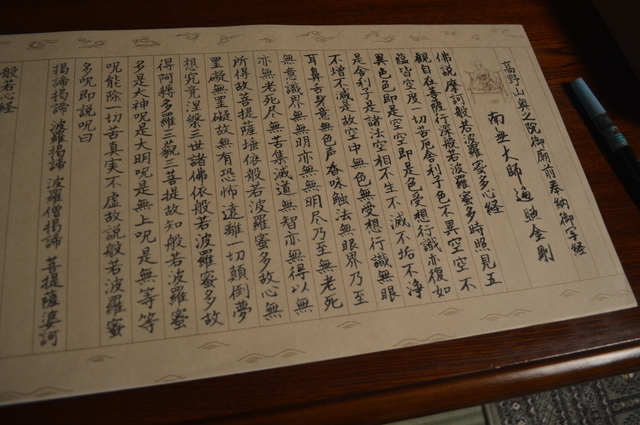 高野山奥之院御廟前奉納御写経
南無大師遍照金剛
佛説摩訶般若波羅蜜多心経
観自在菩薩行深般若波羅蜜多時照見五
蘊皆空度一切苦厄舎利子色不異空空不
異色色即是空空即是色受想行識亦復如
是舎利子是諸法空相不生不滅不垢不浄
不増不減是故空中無色無受想行識無眼
耳鼻舌身意無色声香味触法無眼界乃至
無意識界無無明亦無無明尽乃至無老死
亦無老死尽無苦集滅道無智亦無得以無
所得故菩提薩埵依般若波羅蜜多故心無
罣礙無罣礙故無有恐怖遠離一切顛倒夢
想究竟涅槃三世諸佛依般若波羅蜜多故
得阿耨多羅三藐三菩提故知般若波羅蜜
多是大神呪是大明呪是無上呪是無等等
呪能除一切苦真実不虚故説般若波羅蜜
多呪即説呪曰
掲諦掲諦 波羅掲諦 波羅僧掲諦 菩提薩婆訶
般若心経